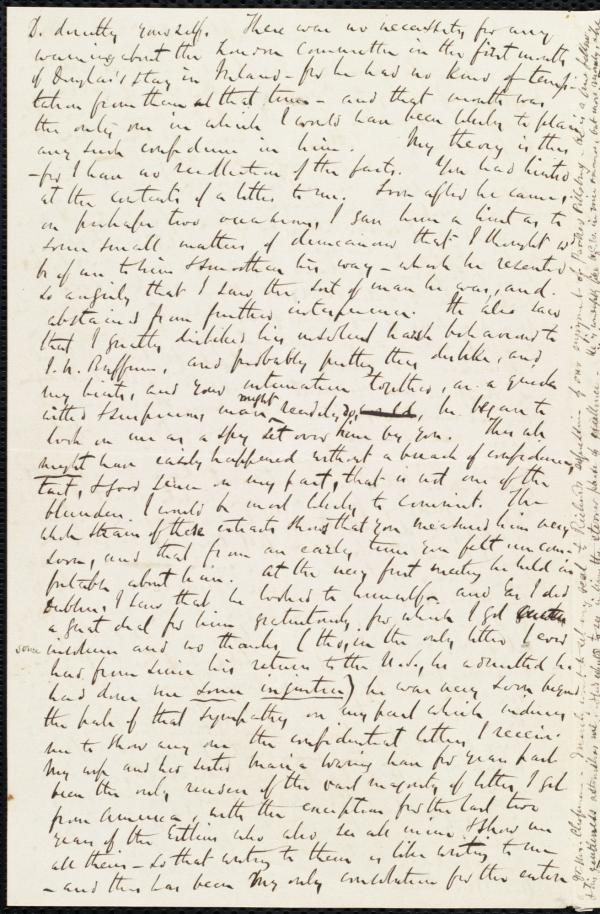 D. directly yourself. There was no necessity for any
warning about the London Committee in the first month
of Douglass's stay in Ireland – for he had no kind of temp-
tation from them at that time – and that month was
the only one in which I would have been likely to place
any such confidence in him. My theory is this
– for I have no recollection of the facts. You had hinted
at the contents of a letter to me. Soon after he came,
on perhaps two occasions, I gave him a hint as to
some small matters of demeanour that I thought w
be of use to him & smoother his way – which he resented
so angrily that I saw the sort of man he was, and
abstained from further interference. He also saw
that I greatly disliked his insolent harsh behaviour to
J. N. Buffum, and probably putting this dislike, and
my hints, and your intimation together, as a quick
witted & suspicious man might readily do, he began to
look on me as a spy set over him by you. This all
might have easily happened without a breach of confidence,
Tact, & good sense on my part, that is not one of the
blunders I would be most likely to commit. The
whole strain of these extracts shows that you measured him very
soon, and that from an early time you felt uncom-
fortable about him. At the very first meeting he held in
Dublin, I saw that he looked to himself and as I did
a great deal for him gratuitously for which I got
some insolence and no thanks, (tho' in the only letter I ever
had from since his return to the U.S., he admitted he
had done me some injustice) he was very soon beyond
the pale of that sympathy on my part which induces
me to show any one the confidential letters I receive
My wife and her sister Maria Waring have for years past
been the only readers of the vast majority of letters I get
from America, with the exception for the last two
years of the Estlins who also see all mine & show me
all theirs – so that writing to them is like writing to me
– and this has been my only consolation for the